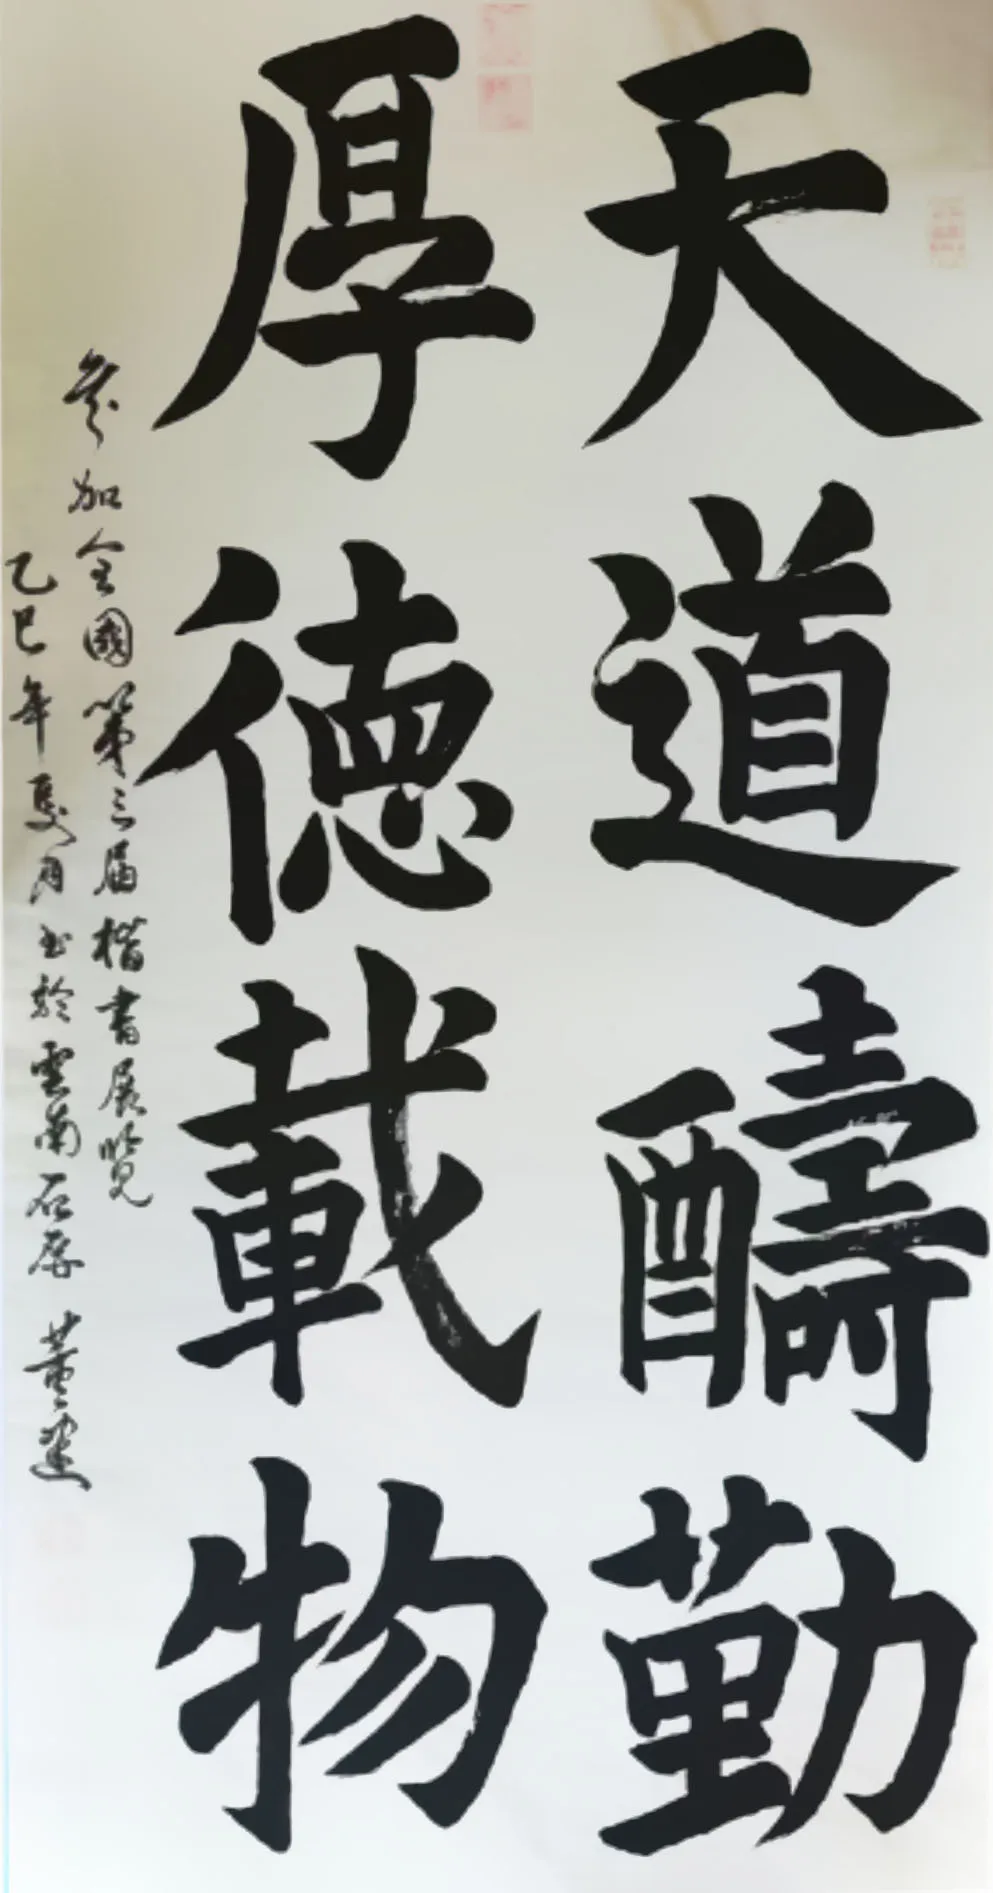 天道醻勤
厚德載物
參加全國第三届楷書展覽
乙巳年夏月书於雲南石屏 董建